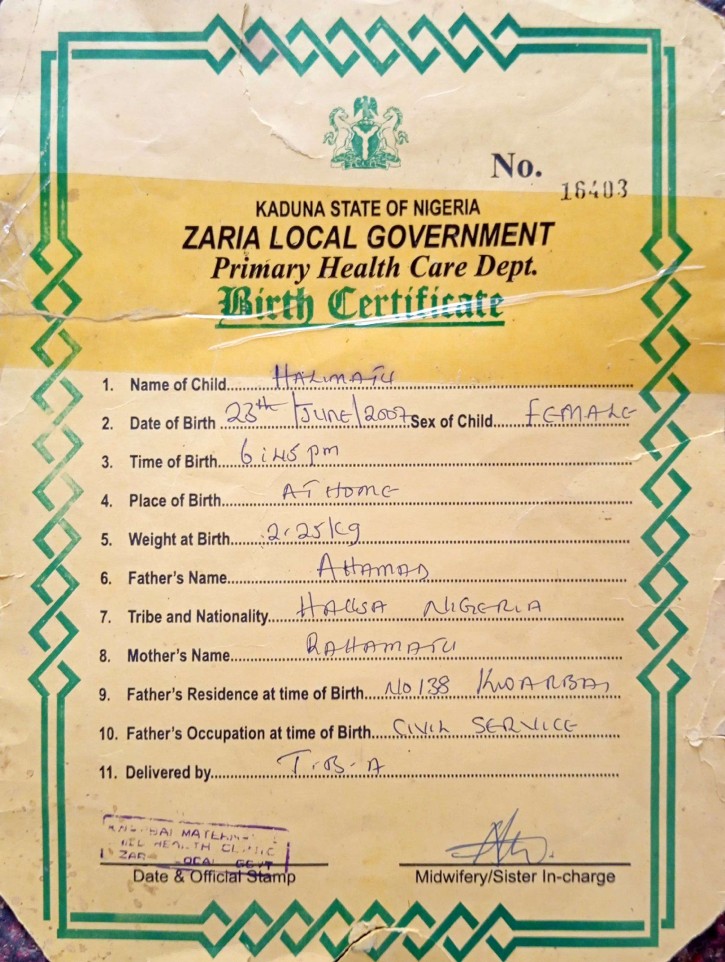 No. 16403
KADUNA STATE OF NIGERIA
ZARIA LOCAL GOVERNMENT
Primary Health Care Dept.
Birth Certificate
1. Name of Child HALIMATU
2. Date of Birth 23th /JUNE/2007 Sex of Child FEMALE
3. Time of Birth 6:45 pm
4. Place of Birth AT HOME
5. Weight at Birth 2.25kg
6. Father's Name AHAMAD
7. Tribe and Nationality HAUSA NIGERIA
8. Mother's Name RAHAMATU
9. Father's Residence at time of Birth NO 138 KWARBAI
10. Father's Occupation at time of Birth CIVIL SERVICE
11. Delivered by T.B.A
HEALTH CLINIC
GOVT
Date & Official Stamp
Midwifery/Sister In-charge